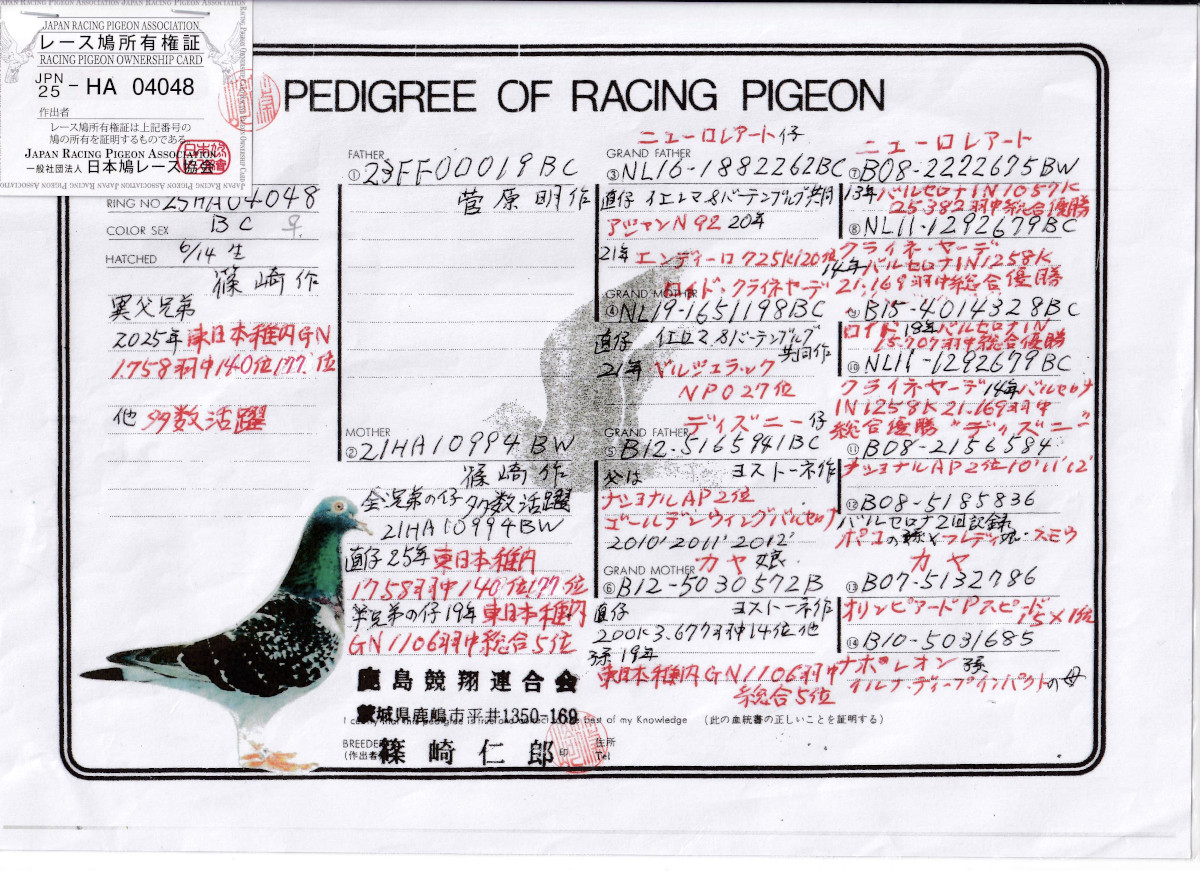 JAPAN RACING PIGEON ASSOCIATION
レース鳩所有権証
RACING PIGEON OWNERSHIP CARD
JPN
25 - HA 04048
作出者
レース鳩所有権証は上記番号の
鳩の所有を証明するものである
JAPAN RACING PIGEON ASSOCIATION
一般社団法人 日本鳩レース協会
PEDIGREE OF RACING PIGEON
RING NO 25HA04048
COLOR SEX BC ♀
HATCHED 6/14 生
篠崎作
異父兄弟
2025年 東日本稚内GN
1.758羽中140位177位
他 多数活躍
FATHER
① 23FF00019BC
菅原明作
MOTHER
② 21HA10994BW
篠崎作
全兄弟の仔 多数活躍
21HA10994BW
直仔25年 東日本稚内
1758羽中140位177位
半兄弟の仔19年 東日本稚内
GN1106羽中総合5位
ニューロレアート仔
GRAND FATHER
③ NL16-1882262BC
直仔 イエレマ&バーテンブルグ共同
アジャンN92 20年
21年 エンディーロ725K120位
ロイド・クライネヤーデ
GRAND MOTHER
④ NL19-1651198BC
直仔 イエロマ&バーテンブルグ
共同作
21年 ベルジュラック
NPO27位
ディズニー仔
GRAND FATHER
⑤ B12-5165941BC
父は ヨストーネ作
ナショナルAP2位
ゴールデンウィングバルセロナ
2010'2011'2012'
カヤ娘
GRAND MOTHER
⑥ B12-5030572B
直仔 ヨストーネ作
200K3.677羽中14位他
孫19年
東日本稚内GN1106羽中
総合5位
ニューロレアート
⑦ B08-2222675BW
13年バルセロナIN1057K
25.382羽中総合優勝
⑧ NL11-1292679BC
クライネ・ヤーデ
14年バルセロナIN1258K
21.169羽中総合優勝
⑨ B15-4014328BC
ロイド 19年バルセロナIN
15.707羽中総合優勝
⑩ NL11-1292679BC
クライネヤーデ 14年バルセロナ
IN1258K21.169羽中
総合優勝 "ディズニー"
⑪ B08-2156584
ナショナルAP2位10'11'12'
⑫ B08-5185836
バルセロナ2回記録
ポコの孫×フレディ娘・スモウ
カヤ
⑬ B07-5132786
オリンピアードPスピード
15×1位
⑭ B10-5031685
ナポレオン孫
イルナ・ディープインパクトの母
鹿島競翔連合会
茨城県鹿嶋市平井1350-169
I certify that this pedigree is true and correct to the best of my Knowledge (此の血統書の正しいことを証明する)
BREEDER
(作出者) 篠崎仁郎 印 住所
Tel